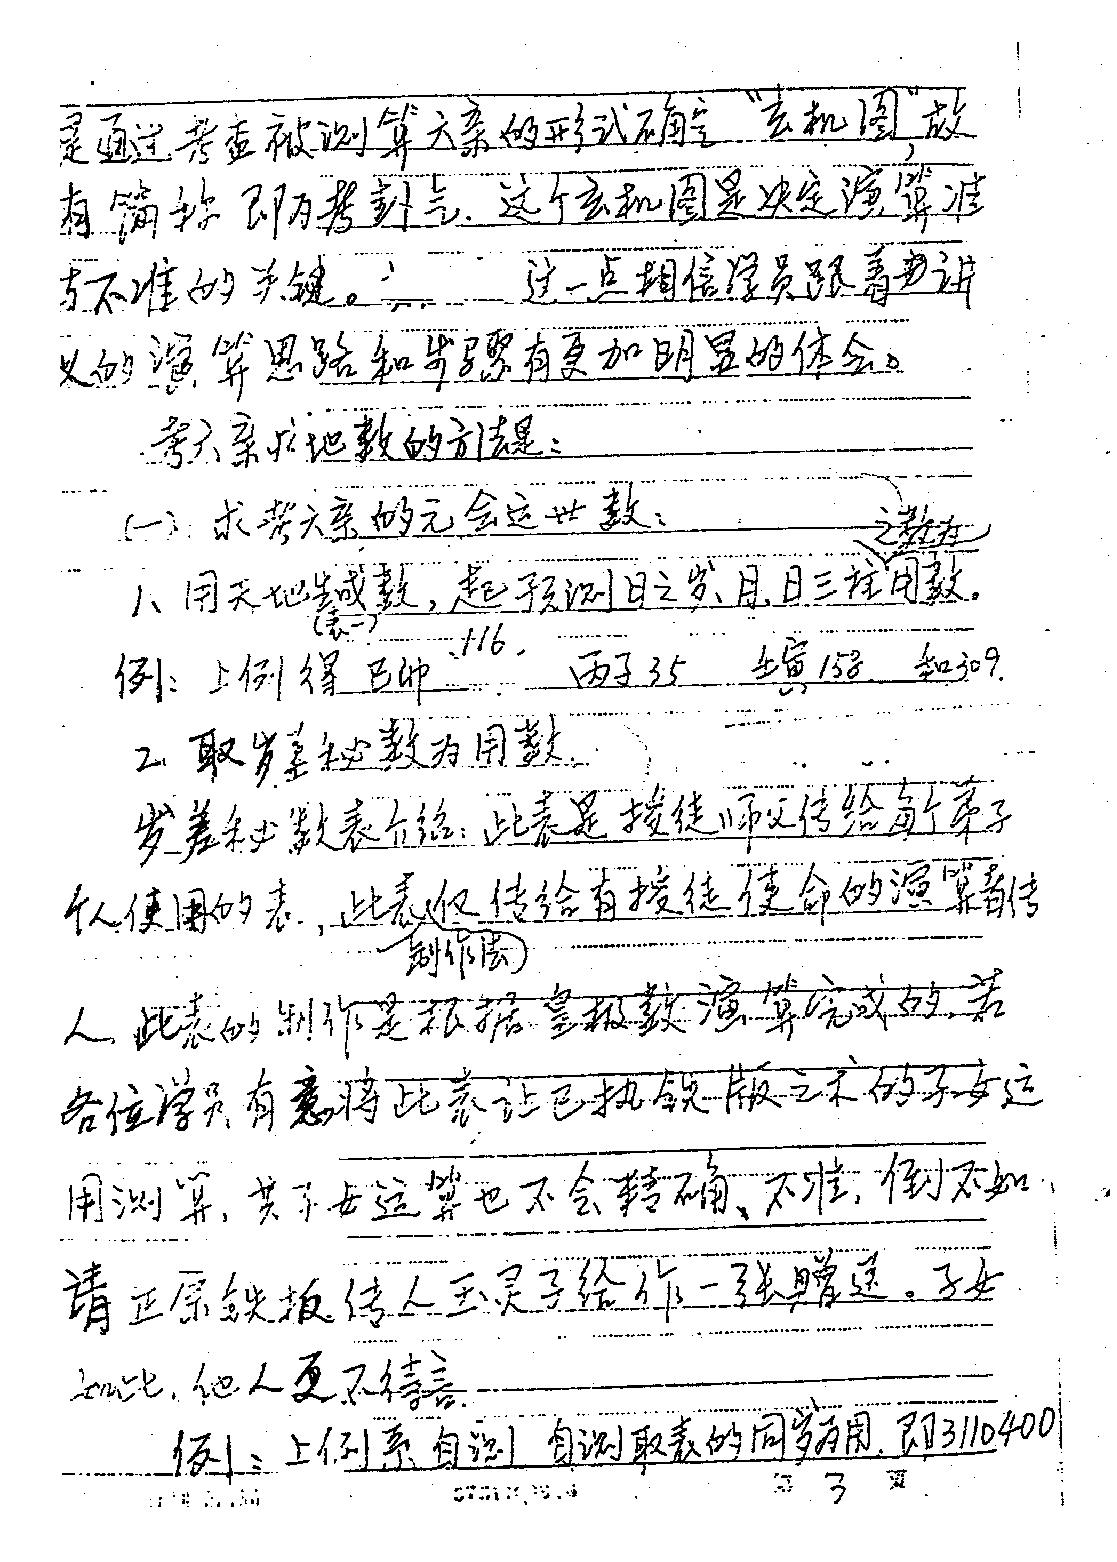 是通过考查被测算六亲的形式确定“玄机图”,故
有简称即为考卦气.这个玄机图是决定演算准
与不准的关键。 这一点相信学员跟着要讲
义的演算思路和步骤有更加明显的体会。
考六亲求地数的方法是:
(一)、求考六亲的元会运世数:
之数为
1、用天地数,起预测日之岁、月、日三柱用数.
(表一)
例:上例得己卯116. 丙子35 壬寅158 和309.
2、取岁差秘数为用数.
岁差秘数表介绍:此表是授徒师父传给每个弟子
个人使用的表,此表仅传给有授徒使命的演算者传
制作法
人.此表的制作是根据皇极数演算完成的.若
各位学员有意将此表让已执铁版之术的子女运
用测算,其子女运算也不会精确、不准,倒不如
请正宗铁板传人玉灵子给作一张赠送。子女
如此,他人更不待言.
例:上例系自测 自测取表的同岁为用.即3110400
第 3 页